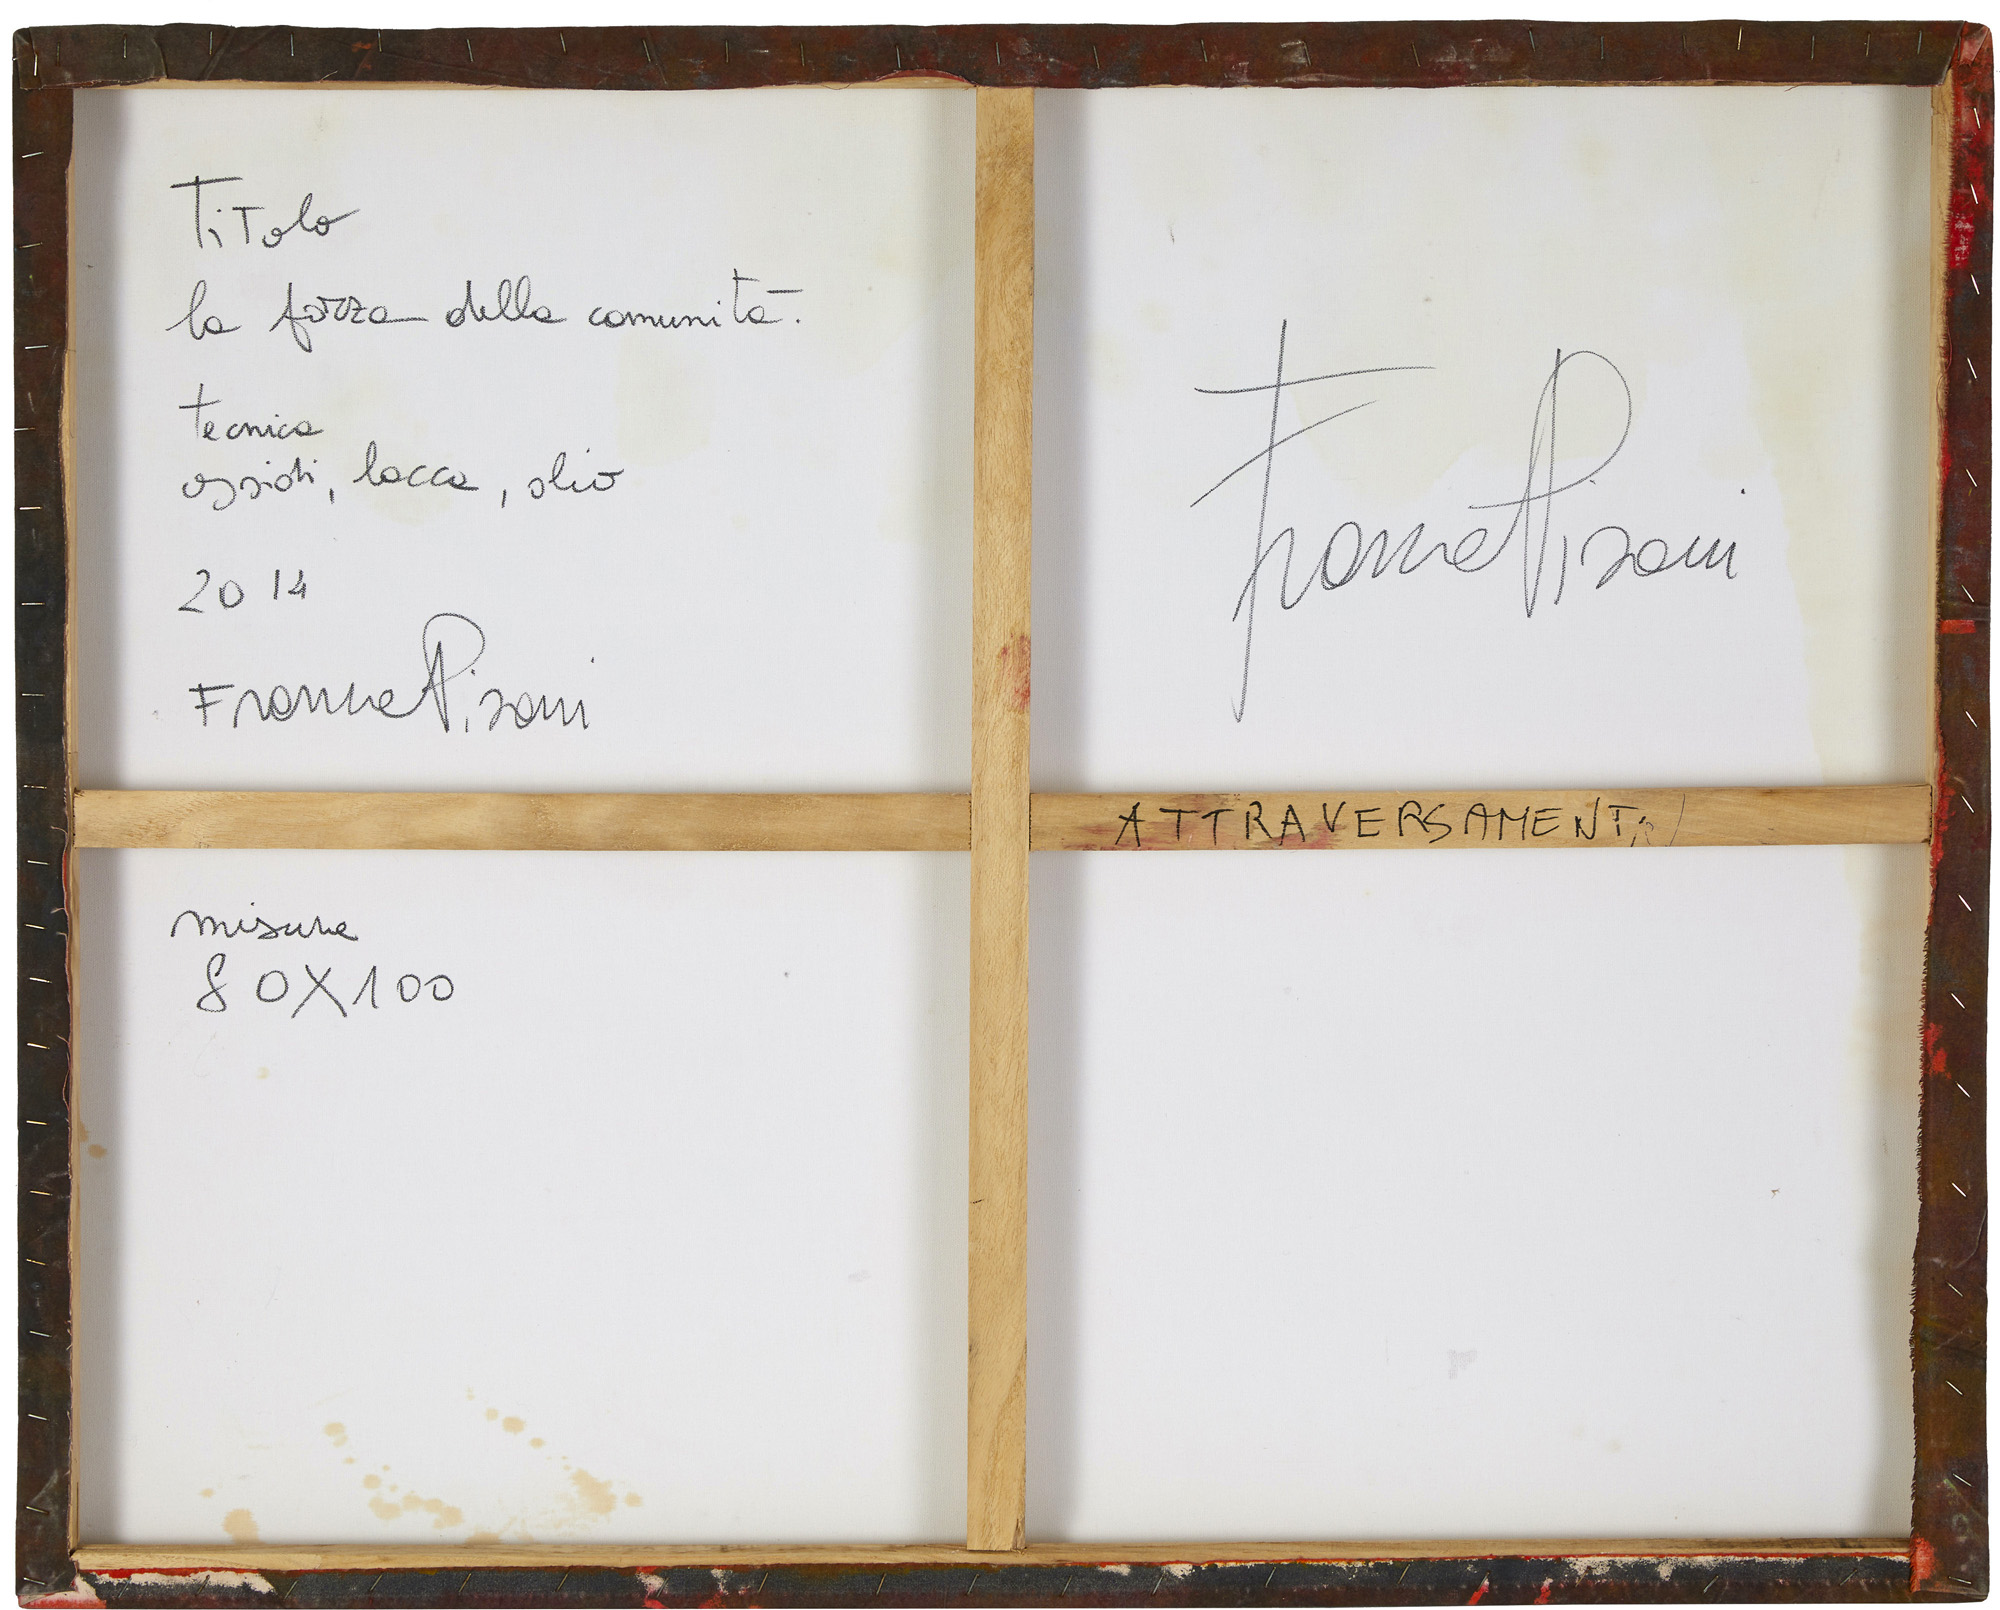 Titolo
la forza della comunità.
tecnica
ossidi, lacca, olio
2014
Franca Pisani
Franca Pisani
ATTRAVERSAMENTi
misure
80X100